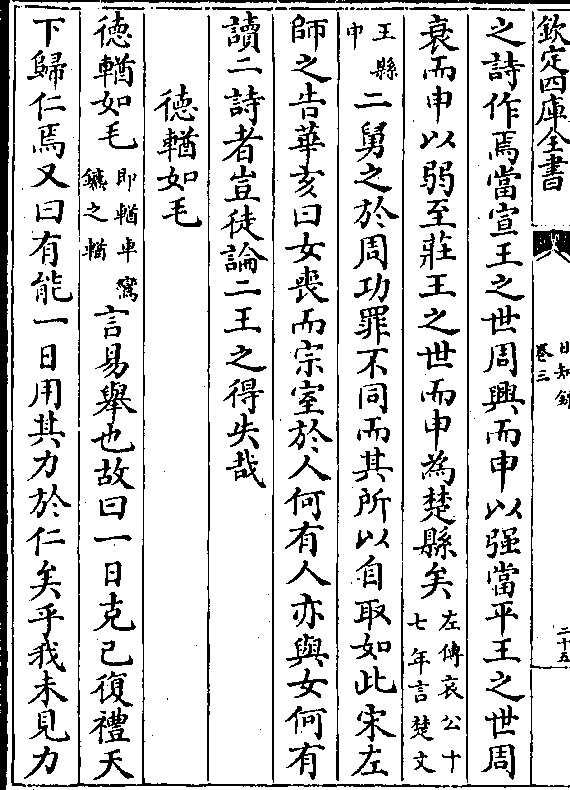 欽定四庫全書
日知録
卷三
二十五
之詩作焉當宣王之世周興而申以强當平王之世周
衰而申以弱至莊王之世而申為楚縣矣左傳哀公十
七年言楚文
王縣
申
二舅之於周功罪不同而其所以自取如此宋左
師之告華亥曰女喪而宗室於人何有人亦與女何有
讀二詩者豈徒論二王之得失哉
徳輶如毛
徳輶如毛即輶車鸞
鑣之輶
言易舉也故曰一日克己復禮天
下歸仁焉又曰有能一日用其力於仁矣乎我未見力